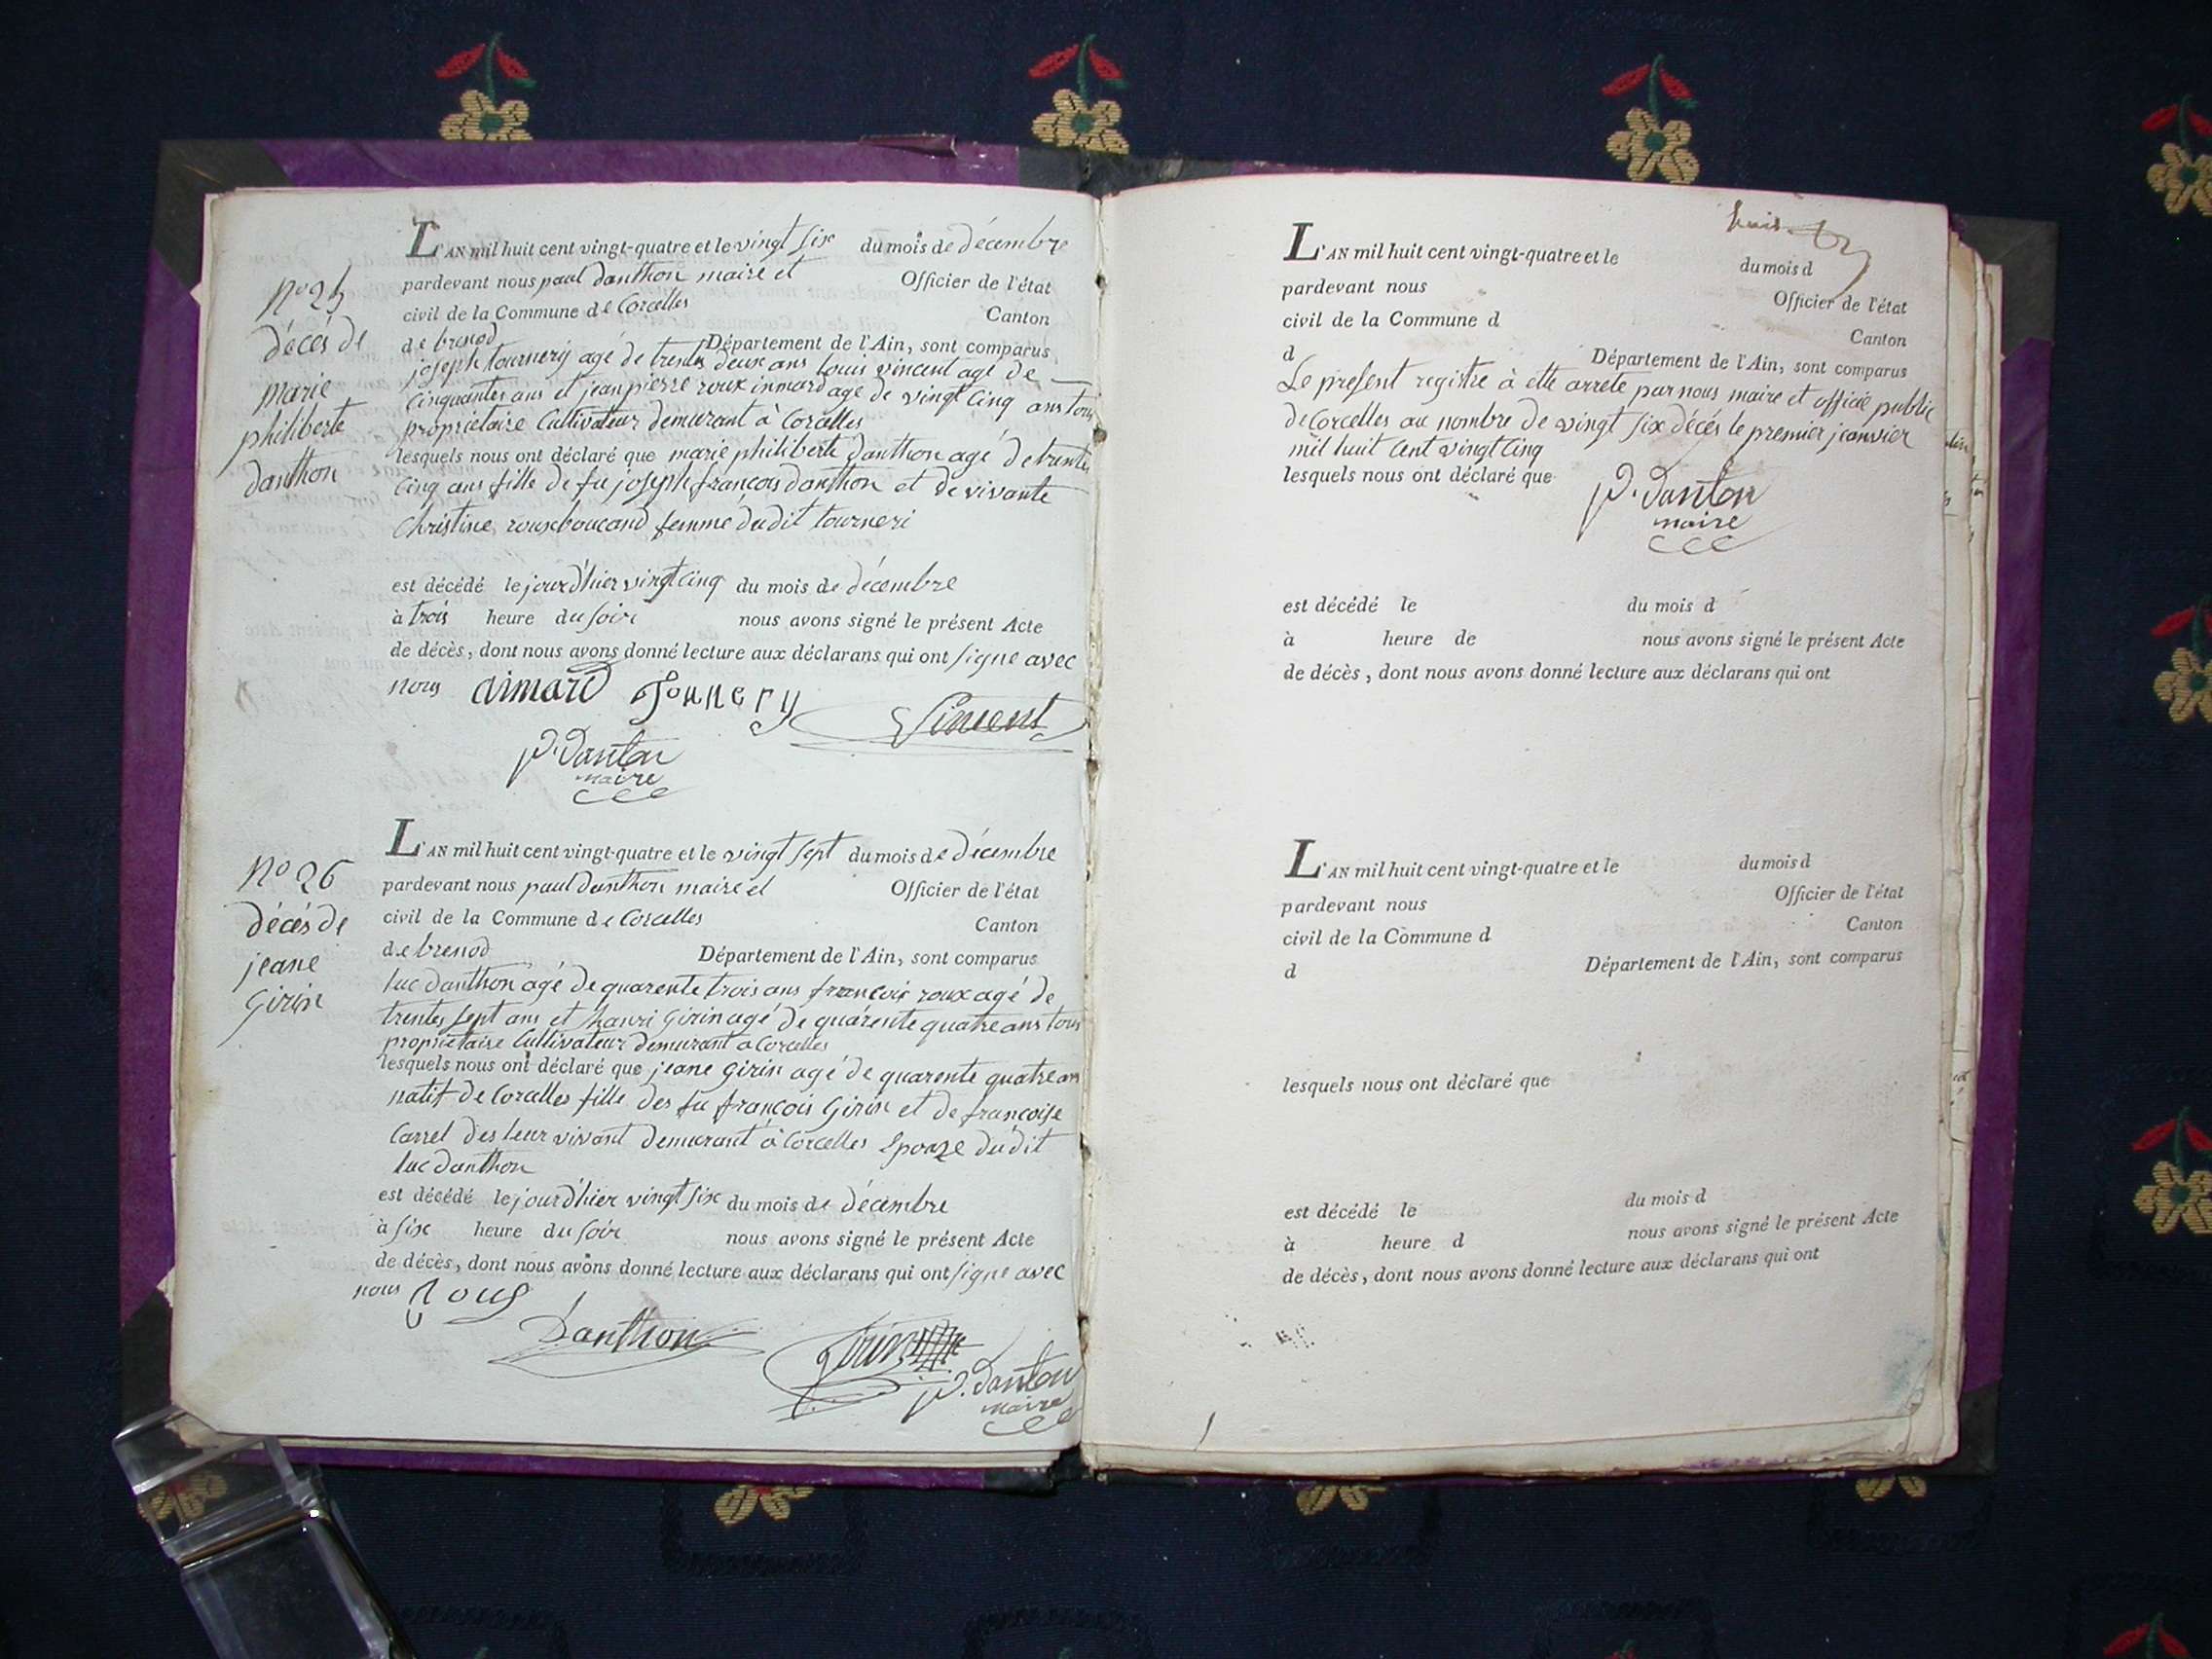 L'AN mil huit cent vingt-quatre et le vingt six du mois de décembre
pardevant nous paul danthon maire et Officier de l'état
civil de la Commune de Corcelles Canton
de brenod Département de l'Ain, sont comparus
joseph tournery agé de trentes deux ans louis vincent agé de
cinquantes ans et jean pierre roux inmard age de vingt cinq ans tous
propriétaire Cultivateur demeurant à Corcelles
lesquels nous ont déclaré que marie philiberte danthon agé de trente
cinq ans fille de fu joseph francois danthon et de vivante
Christine roux boucand femme dudit tourneri
est décédé le jourd'hier vingt cinq du mois de décembre
à trois heure du soir nous avons signé le présent Acte
de décès, dont nous avons donné lecture aux déclarans qui ont signe avec
nous aimard Tournery Vincent
P. Danton
maire
N° 25
décés de
marie
philiberte
danthon
L'AN mil huit cent vingt-quatre et le vingt sept du mois de décembre
pardevant nous paul danthon maire et Officier de l'état
civil de la Commune de Corcelles Canton
de brenod Département de l'Ain, sont comparus
luc danthon agé de quarente trois ans francois roux agé de
trentes sept ans et hanri Girin agé de quarente quatre ans tous
propriétaire Cultivateur demeurant a Corcelles
lesquels nous ont déclaré que jeane Girin agé de quarente quatre ans
natif de Corcelles fille des fu françois Girin et de françoise
Carrel des leur vivant demeurant à Corcelles Epouze dudit
luc danthon
est décédé le jourd'hier vingt six du mois de décembre
à six heure du soir nous avons signé le présent Acte
de décès, dont nous avons donné lecture aux déclarans qui ont signe avec
nous Roux
Danthon Girin
P. Danton
maire
N° 26
décés de
jeane
Girin
huit
L'AN mil huit cent vingt-quatre et le du mois d
pardevant nous Officier de l'état
civil de la Commune d Canton
d Département de l'Ain, sont comparus
Le present registre à etté arrete par nous maire et officié public
de Corcelles au nombre de vingt six décés le premier jeanvier
mil huit cent vingt cinq
lesquels nous ont déclaré que
P. Danton
maire
est décédé le du mois d
à heure de nous avons signé le présent Acte
de décès, dont nous avons donné lecture aux déclarans qui ont
L'AN mil huit cent vingt-quatre et le du mois d
pardevant nous Officier de l'état
civil de la Commune d Canton
d Département de l'Ain, sont comparus
lesquels nous ont déclaré que
est décédé le du mois d
à heure d nous avons signé le présent Acte
de décès, dont nous avons donné lecture aux déclarans qui ont